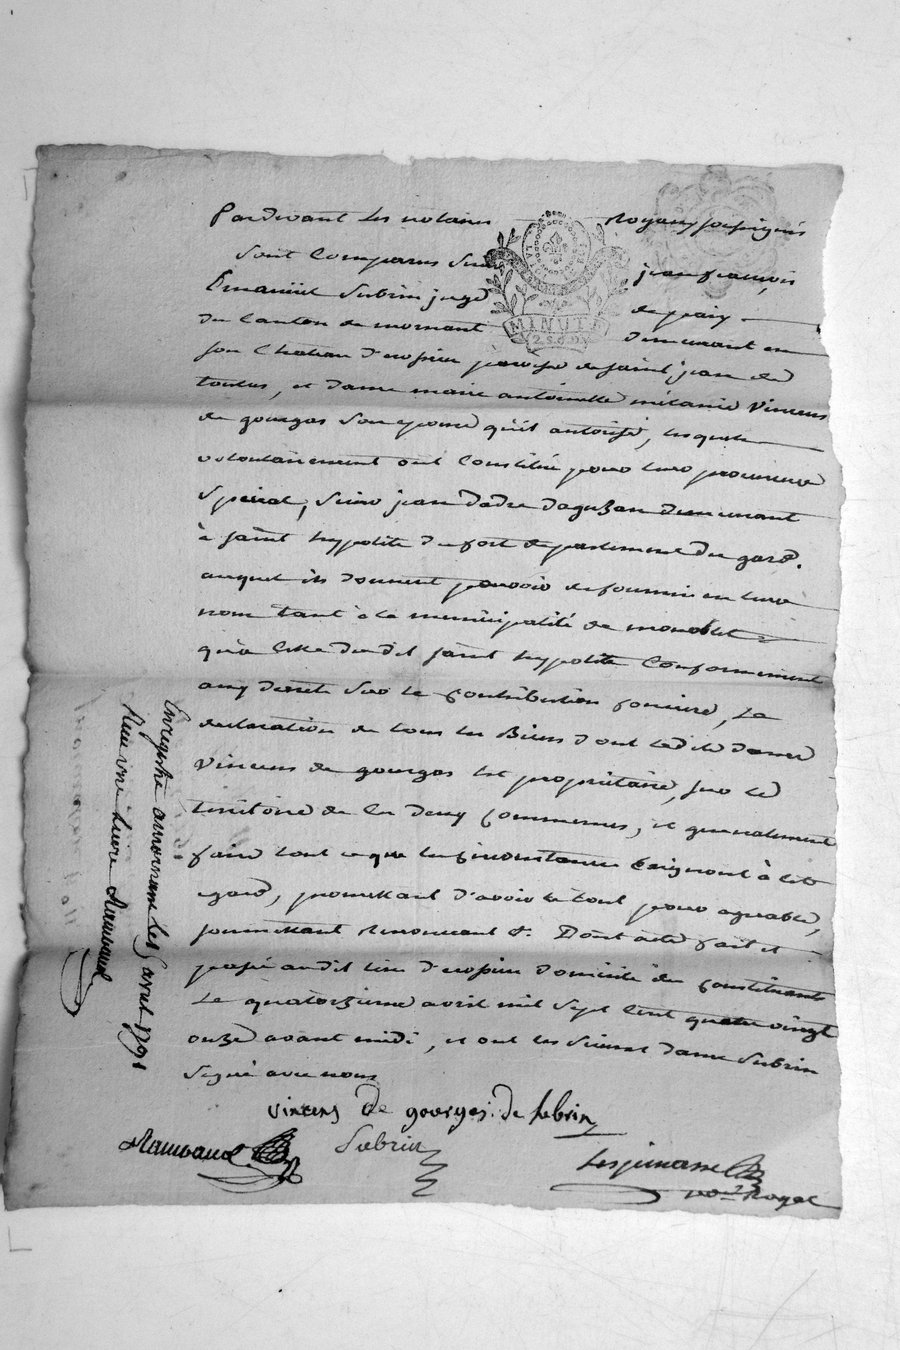 Pardevant les notaires Royaux soussignés
Sont Comparus Sieur jean françois
Emanüel Subrin juge de paix
du Canton de mornant demeurant en
son Chateau d'rosieu paroisse de saint jean de
toulas, et dame marie antoinette mélanie Vincens
de gourgas Son epouse qu'il autorise, lesquels
volontairement ont Constitué pour leur procureur
Spécial, Sieur jean daguzan demeurant
à saint hypolite du fort departement du gard.
auquel ils donnent pouvoir de fournir en leur
nom tant à la municipalité de monoblet
qu'a Celle dudit saint hypolite Conformement
aux decrets Sur la Contribution fonciere, La
declaration de tous les Biens dont ladite dame
Vincens de gourgas est propriétaire, sur le
territoire de Ces deux Communes, et generalement
faire tout ce que les Circonstances Exigeront à Cet
egard, promettant d'avoir le tout pour agréable,
soumettant Renonçant &. Dont acte fait et
passé audit lieu d'rosieu domicile des Constituants
Le quatorzieme avril mil Sept Cent quatre vingt
onze avant midi, et ont les Sieur et dame Subrin
Signé avec nous
Vincens De gourgas: de subrin
Rambaud Subrin
Lesjimasse
no.re Royal
Enregistré a mornant Les avril 1791
Reçu une Livre Rambaud
MINUTE
2.S.6.D.